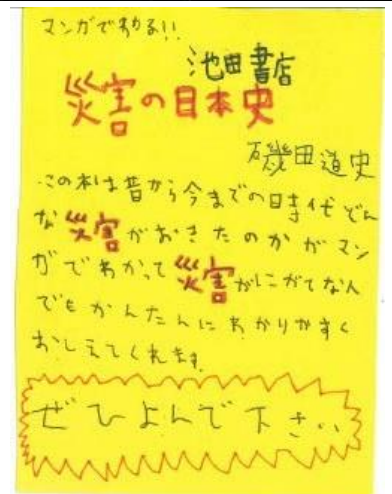 マンガでわかる!!
池田書店
災害の日本史
磯田道史
この本は昔から今までの時代どん
な災害がおきたのかがマン
ガでわかって災害がにがてな人
でもかんたんにわかりやすく
おしえてくれます。
ぜひよんで下さい